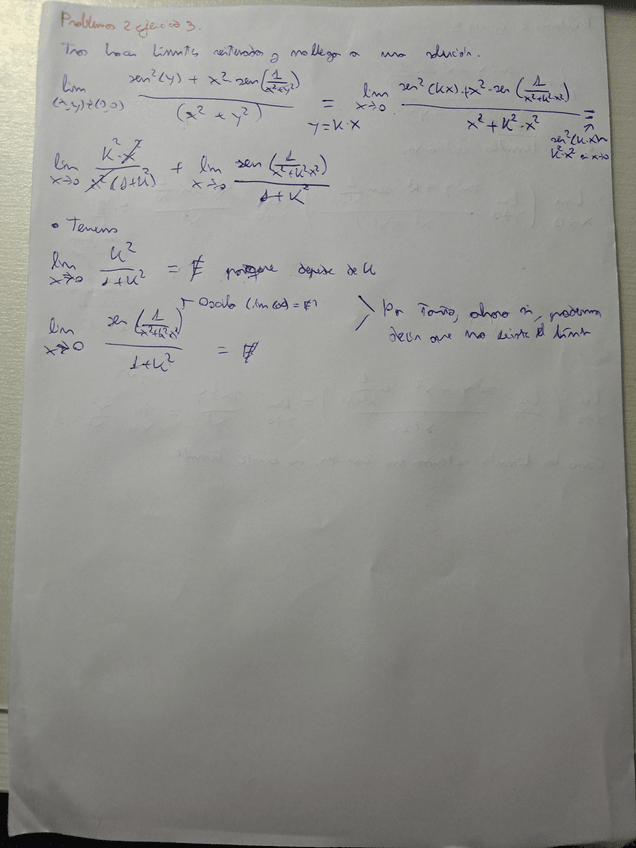 Problemas 2 ejercicio 3.
Tras hacer límites reiterados y no llego a una solución.
lim (x,y)→(0,0) (sen²(y) + x²·sen(1/(x²+y²)))/(x² + y²) = y=k·x lim x→0 (sen²(kx) + x²·sen(1/(x²+k²·x²)))/(x² + k²·x²) =
sen²(k·x)~ k²·x² en x→0
lim x→0 (k²·x²)/(x²(1+k²)) + lim x→0 sen(1/(x²+k²x²))/(1+k²)
• Tenemos
lim x→0 k²/(1+k²) = ∄ porque depende de k
lim x→0 sen(1/(x²+k²x²))/(1+k²) = ∄ Oscila
Por tanto, ahora si, podemos
decir que no existe el límite